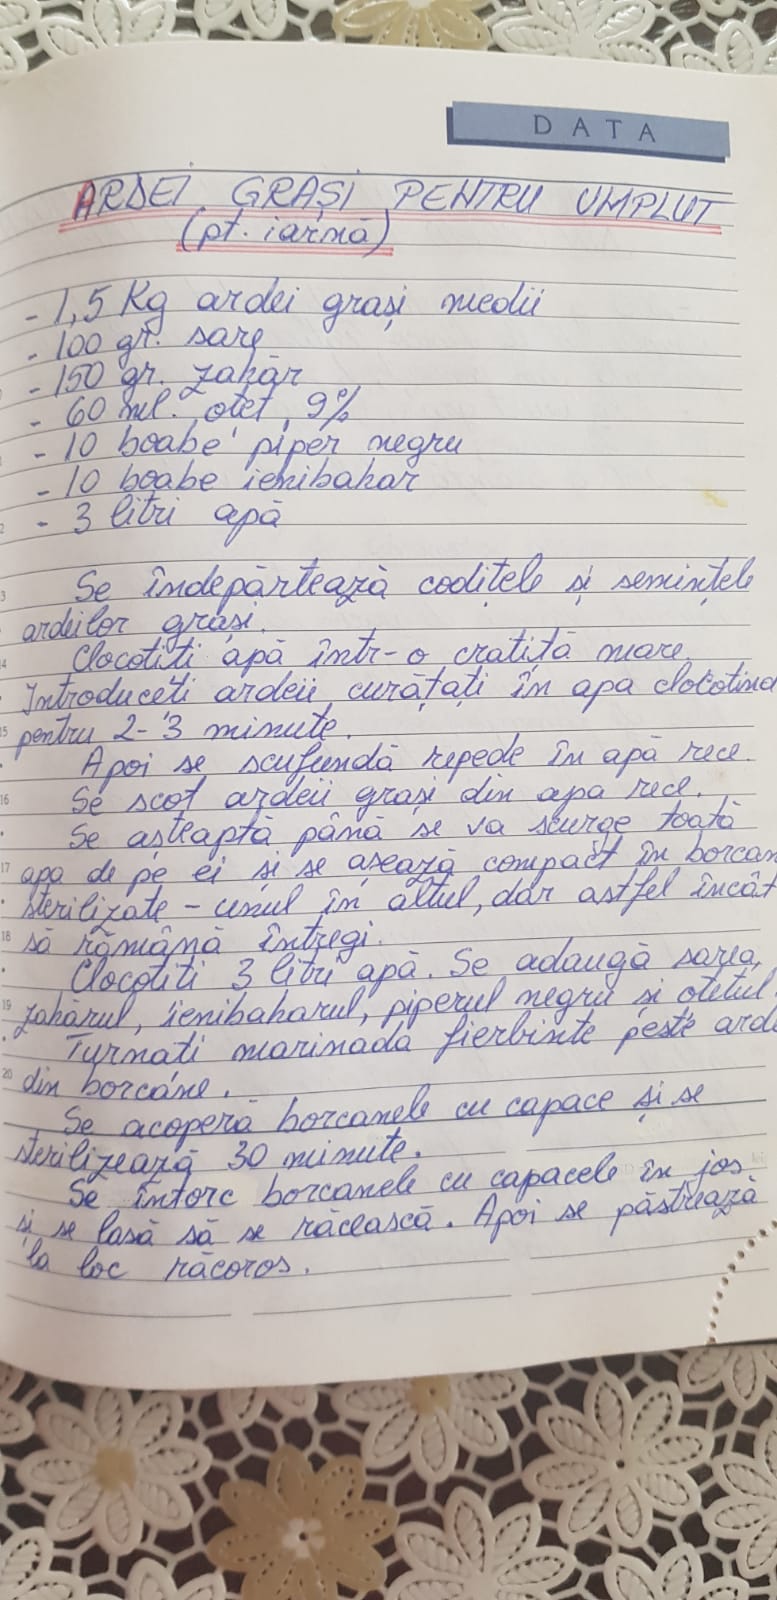 DATA
ARDEI GRAȘI PENTRU UMPLUT
(pt. iarnă)
- 1,5 Kg ardei grași medii
- 100 gr. sare
- 150 gr. zahăr
- 60 ml. oțet 9%
- 10 boabe piper negru
- 10 boabe ienibahar
- 3 litri apă
Se îndepărtează codițele și semințele
ardeilor grași.
Clocotiți apă într-o cratiță mare.
Introduceți ardeii curățați în apa clocotind
pentru 2-3 minute.
Apoi se scufundă repede în apă rece.
Se scot ardeii grași din apa rece.
Se așteaptă până se va scurge toată
apa de pe ei și se așează compact în borcan
sterilizate - unul în altul, dar astfel încât
să rămână întregi.
Clocotiți 3 litri apă. Se adaugă sarea,
zahărul, ienibaharul, piperul negru și oțetul.
Turnați marinada fierbinte peste arde
din borcane.
Se acoperă borcanele cu capace și se
sterilizează 30 minute.
Se întorc borcanele cu capacele în jos
și se lasă să se răcească. Apoi se păstrează
la loc răcoros.